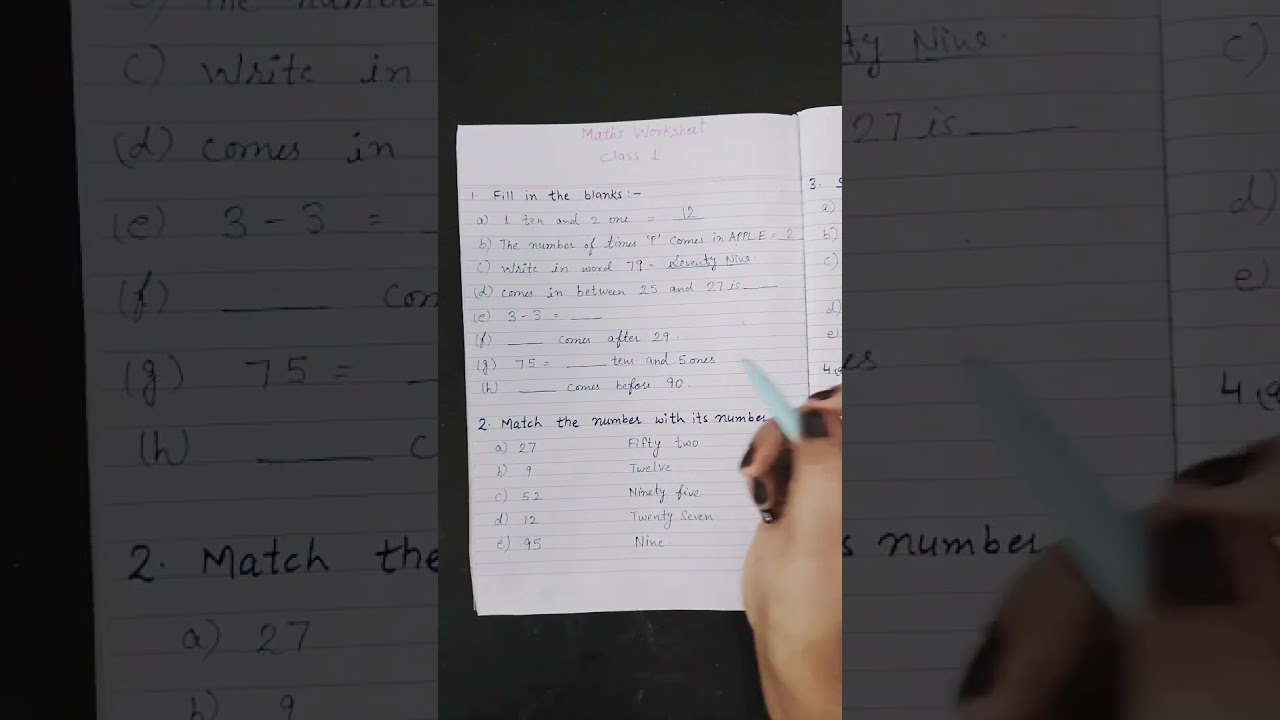 Maths Worksheet
Class 1
1. Fill in the blanks:-
a) 1 ten and 2 one = 12
b) The number of times 'P' comes in APPLE = 2
c) Write in word 79 = Seventy Nine.
(d) comes in between 25 and 27 is ____
(e) 3 - 3 = ____
(f) ____ comes after 29.
(g) 75 = ____ tens and 5 ones
(h) ____ comes before 90.
2. Match the number with its number
a) 27 Fifty two
b) 9 Twelve
c) 52 Ninety five
d) 12 Twenty Seven
e) 95 Nine.
3.
a)
b)
c)
d)
e)
4.